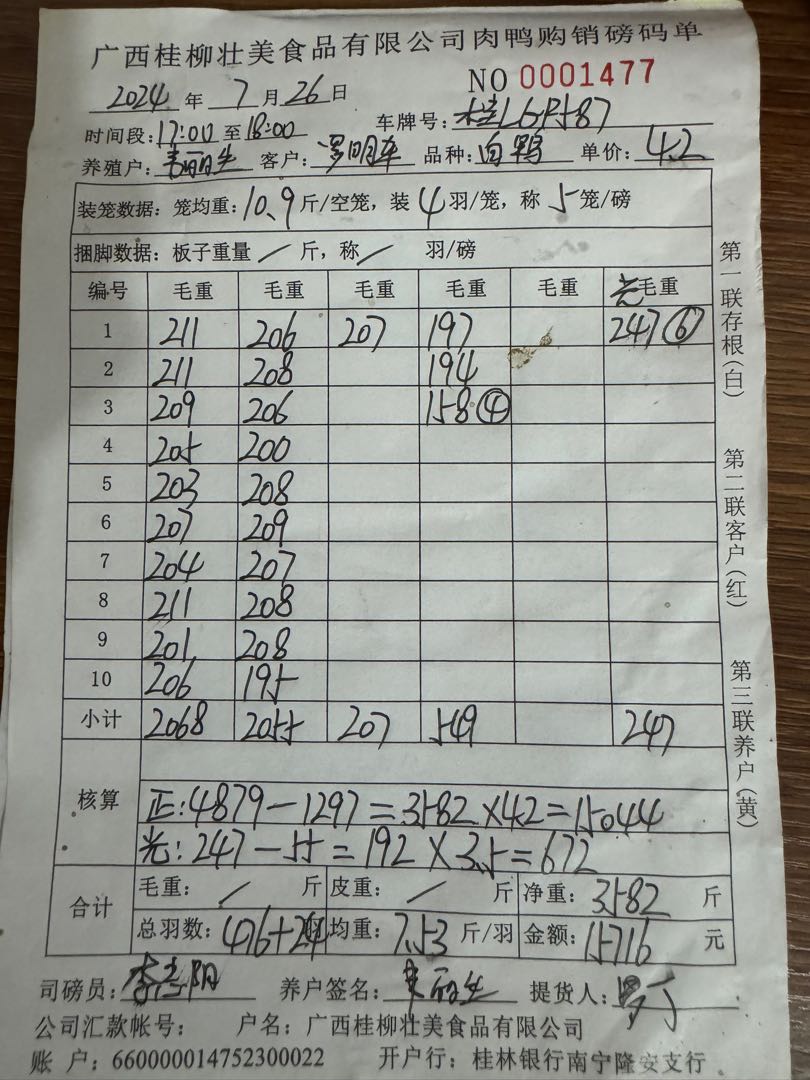 广西桂柳壮美食品有限公司肉鸭购销磅码单
2024 年 7 月 26 日 NO 0001477
时间段: 17:00 至 18:00 车牌号: 桂L6R587
养殖户: 韦丽生 客户: 罗明车 品种: 白鸭 单价: 4.2
装笼数据: 笼均重: 10.9 斤/空笼, 装 4 羽/笼, 称 5 笼/磅
捆脚数据: 板子重量 / 斤, 称 / 羽/磅
编号 毛重 毛重 毛重 毛重 毛重 光毛重
1 211 206 207 197 247⑥
2 211 208 194
3 209 206 158④
4 205 200
5 203 208
6 207 209
7 204 207
8 211 208
9 201 208
10 206 195
小计 2068 2055 207 549 247
核算
正:4879-1297=3582×4.2=15044
光:247-55=192×3.5=672
合计
毛重: / 斤 皮重: / 斤 净重: 3582 斤
总羽数: 476+24羽 均重: 7.53 斤/羽 金额: 15716 元
司磅员: 阳 养户签名: 韦丽生 提货人:
公司汇款帐号: 户名: 广西桂柳壮美食品有限公司
账 户: 660000014752300022 开户行: 桂林银行南宁隆安支行
第一联存根(白)
第二联客户(红)
第三联养户(黄)